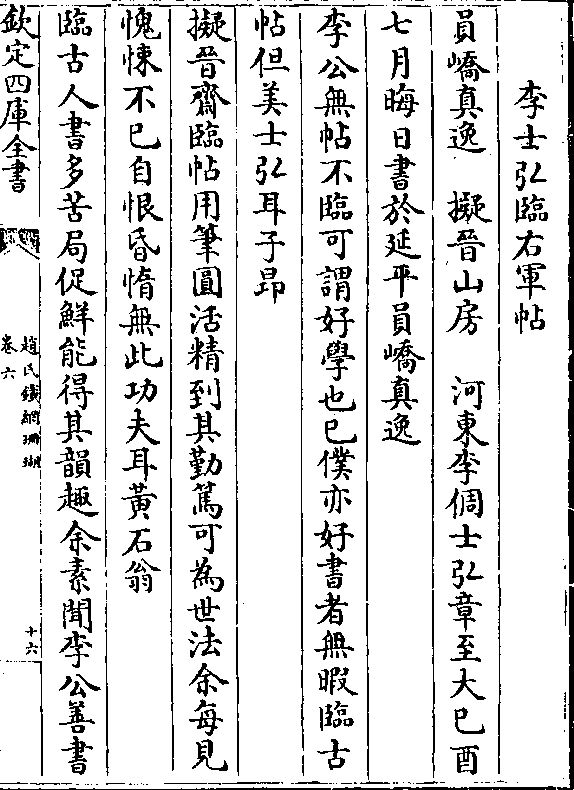 李士弘臨右軍帖
員嶠真逸　擬晉山房　河東李倜士弘章至大已酉
七月晦日書於延平員嶠真逸
李公無帖不臨可謂好學也已僕亦好書者無暇臨古
帖但美士弘耳子昂
擬晉齋臨帖用筆圓活精到其勤篤可為世法余每見
愧悚不已自恨昏惰無此功夫耳黃石翁
臨古人書多苦局促鮮能得其韻趣余素聞李公善書
欽定四庫全書
趙氏鐵網珊瑚
卷六
十六